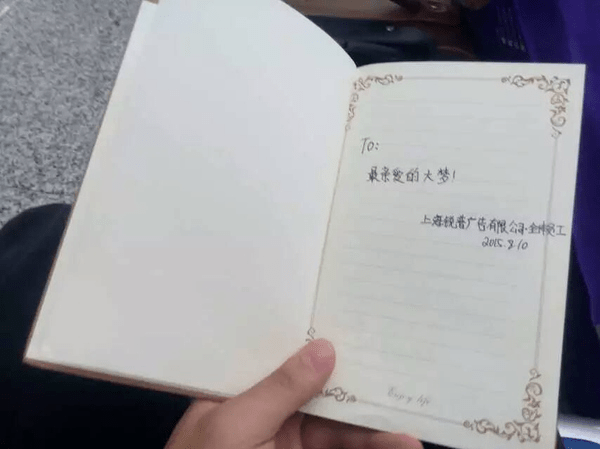 To:
最亲爱的大梦!
上海锐普广告有限公司·全体员工
2015.9.10
Enjoy life